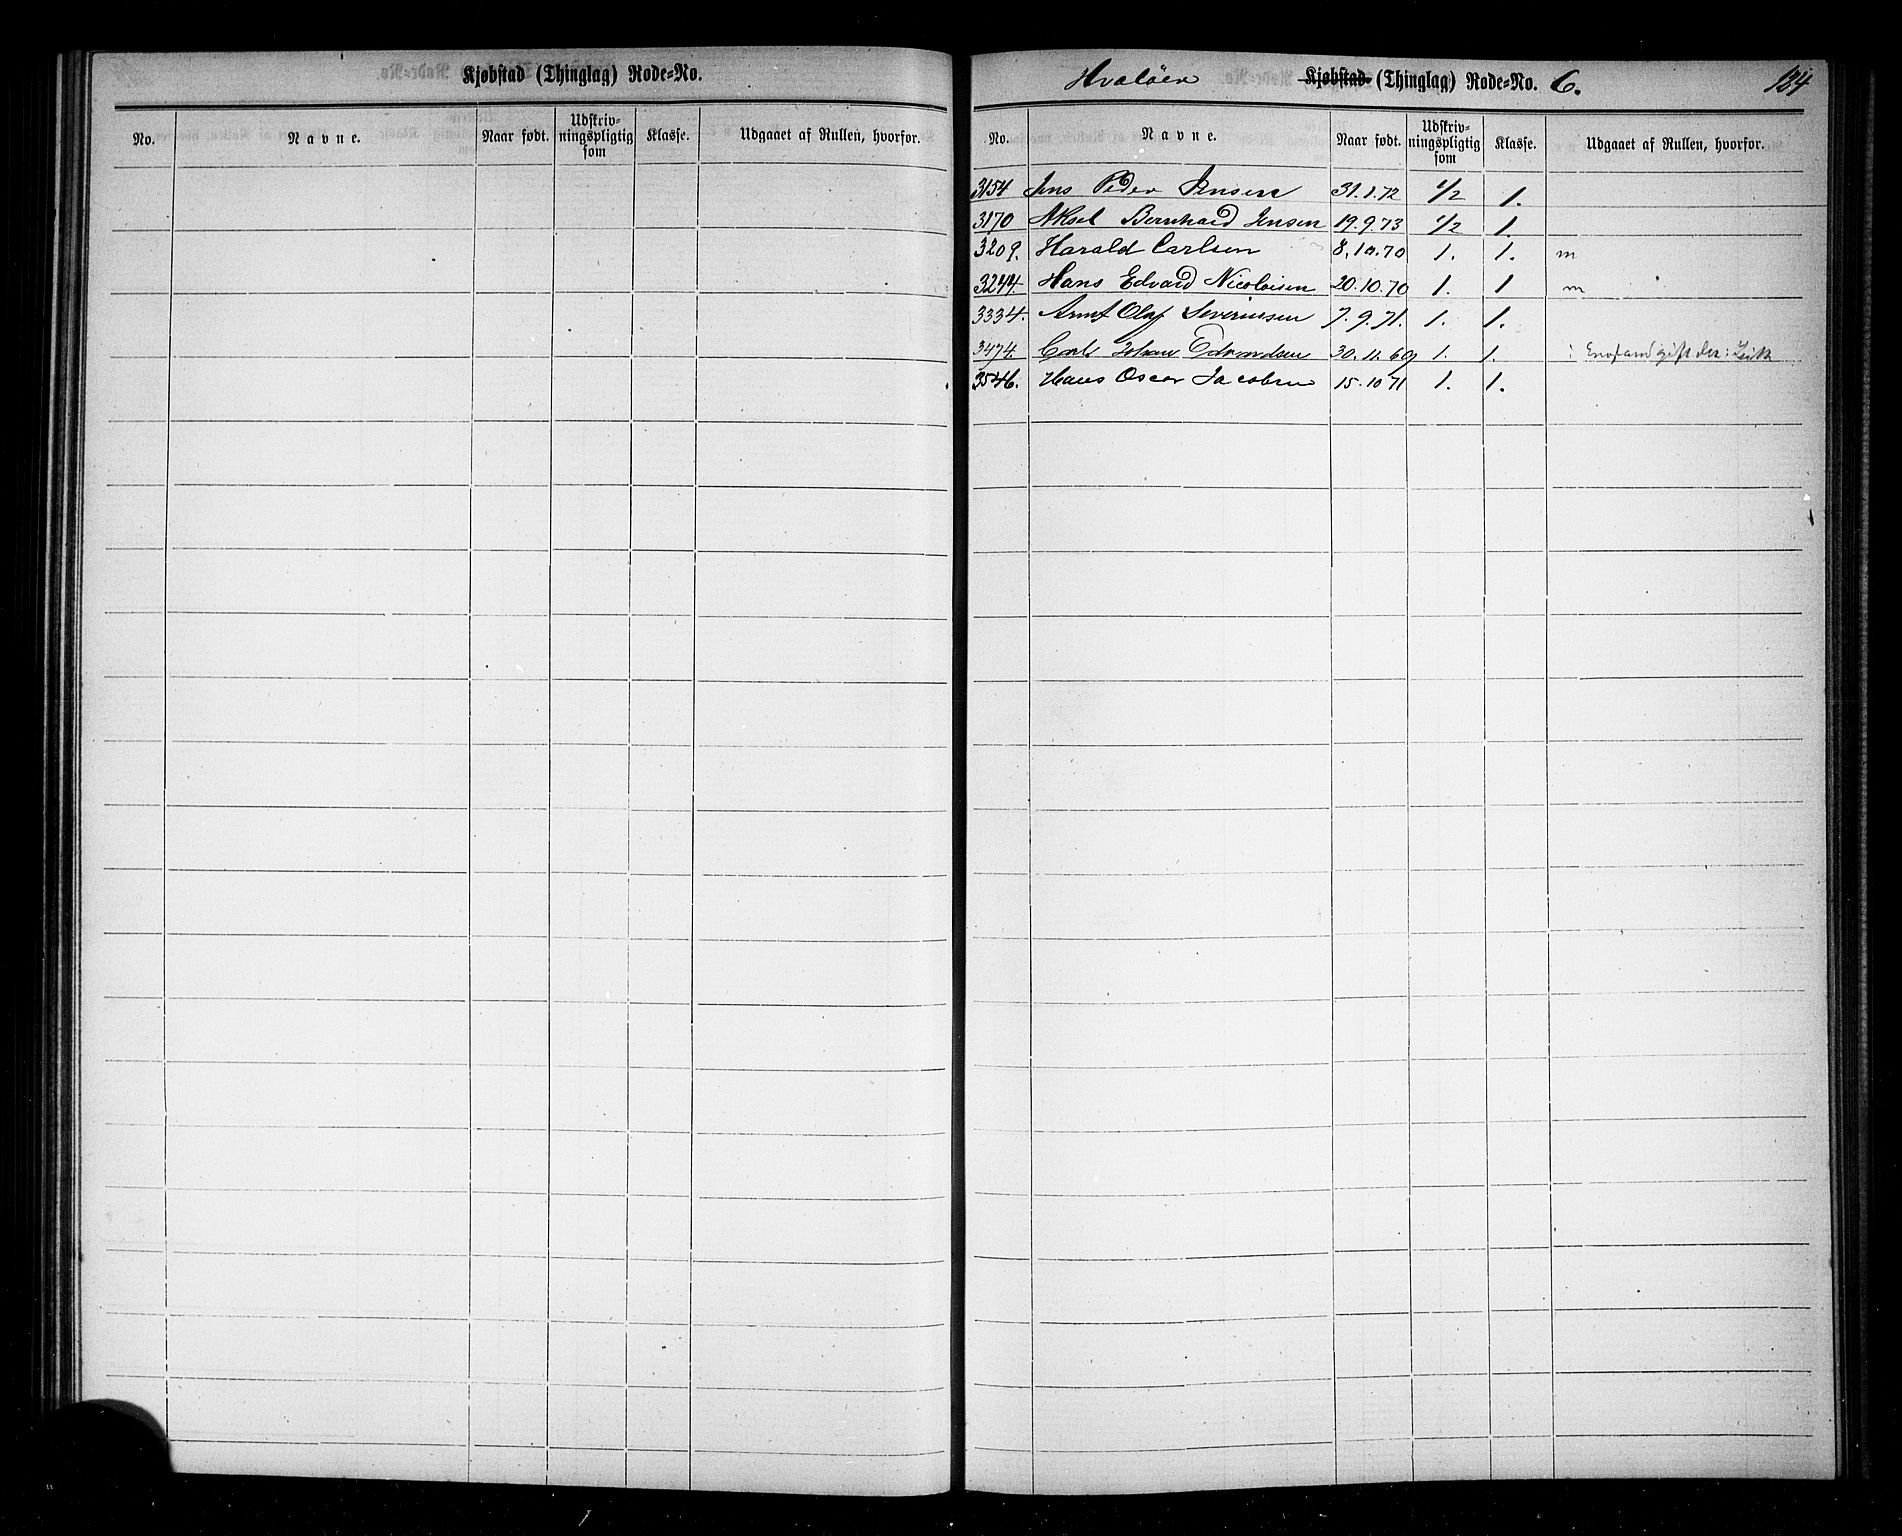 Kjøbstad (Thinglag) Rode=No.
No. Navne. Naar født. Udskriv-ningspligtig som Klasse. Udgaaet af Rullen, hvorfor.
Hvaløer Kjøbstad (Thinglag) Rode=No. 6. 184
No. Navne. Naar født. Udskriv-ningspligtig som Klasse. Udgaaet af Rullen, hvorfor.
3154 Jens Peder Jensen 31.1.72 1/2 1.
3170 Aksel Bernhard Jensen 19.9.73 1/2 1.
3209. Harald Carlsen 8.10.70 1. 1. m
3244. Hans Edvard Nicolaisen 20.10.70 1. 1 m
3334. Arnt Olaf Severinsen 7.9.71. 1. 1.
3474. Carl Johan Edvardsen 30.11.69 1. 1.
3546. Hans Oscar Jacobsen 15.10 71 1. 1.